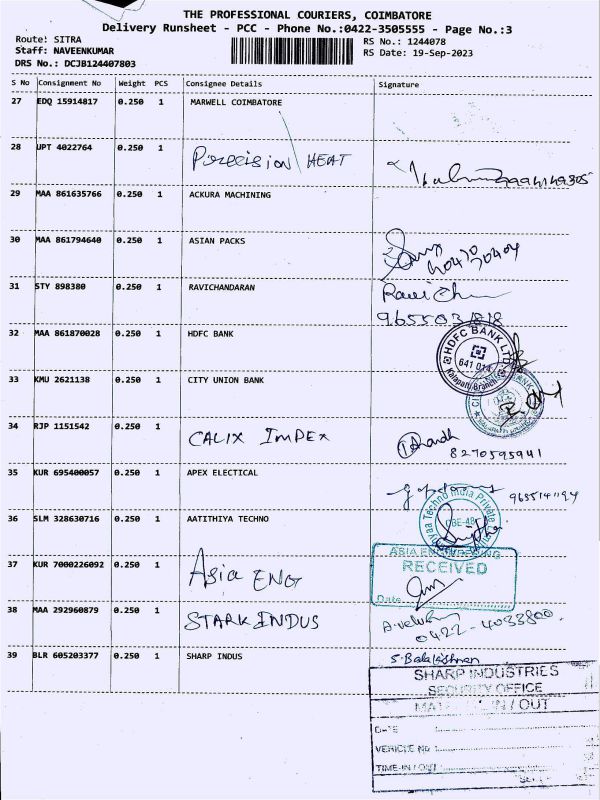 THE PROFESSIONAL COURIERS, COIMBATORE
Delivery Runsheet - PCC - Phone No.:0422-3505555 - Page No.:3
Route: SITRA
RS No.: 1244078
Staff: NAVEENKUMAR
RS Date: 19-Sep-2023
DRS No.: DCJB124407803
S No Consignment No Weight PCS Consignee Details Signature
27 EDQ 15914817 0.250 1 MARWELL COIMBATORE
28 UPT 4022764 0.250 1 Precision HEAT
29 MAA 861635766 0.250 1 ACKURA MACHINING
30 MAA 861794640 0.250 1 ASIAN PACKS
31 STY 898380 0.250 1 RAVICHANDRAN
9655031818
32 MAA 861870028 0.250 1 HDFC BANK
HDFC BANK LTD
641 014
Kalapatti Branch
33 KMU 2621138 0.250 1 CITY UNION BANK
34 RJP 1151542 0.250 1 CALIX IMPEX
8270595941
35 KUR 695400057 0.250 1 APEX ELECTICAL
36 SLM 328630716 0.250 1 AATITHIYA TECHNO
Techno India Private
37 KUR 7000226092 0.250 1 Asia ENG
ASIA ENGINEERING
RECEIVED
Date
38 MAA 292960879 0.250 1 STARK INDUS
0422-4033800
39 BLR 605203377 0.250 1 SHARP INDUS
S. Balakrishnan
SHARP INDUSTRIES
SECURITY OFFICE
IN / OUT
DATE
VEHICLE No
TIME-IN / OUT